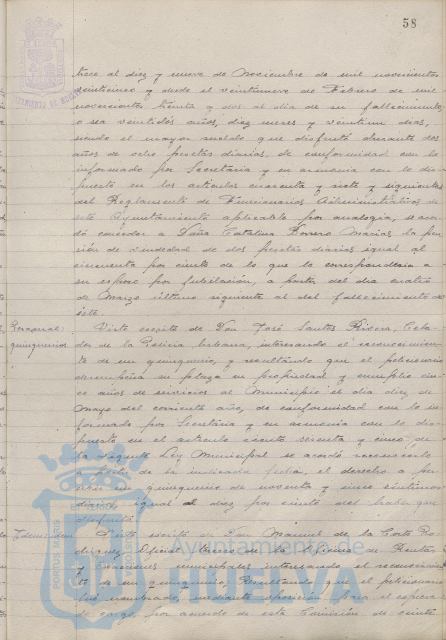 58
trece al diez y nueve de Noviembre de mil novecientos
veinticinco y desde el veintinueve de Febrero de mil
novecientos treinta y dos al día de su fallecimiento,
o sea veintidós años, diez meses y veintiún días,
siendo el mayor sueldo que disfrutó durante dos
años de ocho pesetas diarias, de conformidad con lo
informado por Secretaría y en armonía con lo dis-
puesto en los artículos cuarenta y siete y siguientes
del Reglamento de Funcionarios Administrativos de
este Ayuntamiento aplicable por analogía, se acor-
dó conceder a Doña Catalina Borrero Macías la pen-
sión de viudedad de dos pesetas diarias igual al
cincuenta por ciento de lo que le correspondería a
su esposo por jubilación, a partir del día cuatro
de Marzo último siguiente al del fallecimiento de
éste.
Personal: quinquenios. Visto escrito de Don José Santos Rivera, Cela-
dor de la Policía Urbana, interesando el reconocimien-
to de un quinquenio, y resultando que el peticionario
desempeña su plaza en propiedad y cumplió cin-
co años de servicios al Municipio el día diez de
Mayo del corriente año, de conformidad con lo in-
formado por Secretaría y en armonía con lo dis-
puesto en el artículo ciento sesenta y cinco de
la vigente Ley Municipal se acordó reconocerle
a partir de la indicada fecha, el derecho a per-
cibir un quinquenio de noventa y cinco céntimos
diarios igual al diez por ciento del haber que
disfruta.
Idem idem Visto escrito de Don Manuel de la Corte Ro-
dríguez, Oficial tercero de la Oficina de Rentas
y Exacciones municipales interesando el reconocimien-
to de un quinquenio. Resultando que el peticionario
fué nombrado, mediante oposición, para el expresa-
do cargo, por acuerdo de esta Comisión de veinte
Ayuntamiento de
HUELVA
PORTUS MARIS